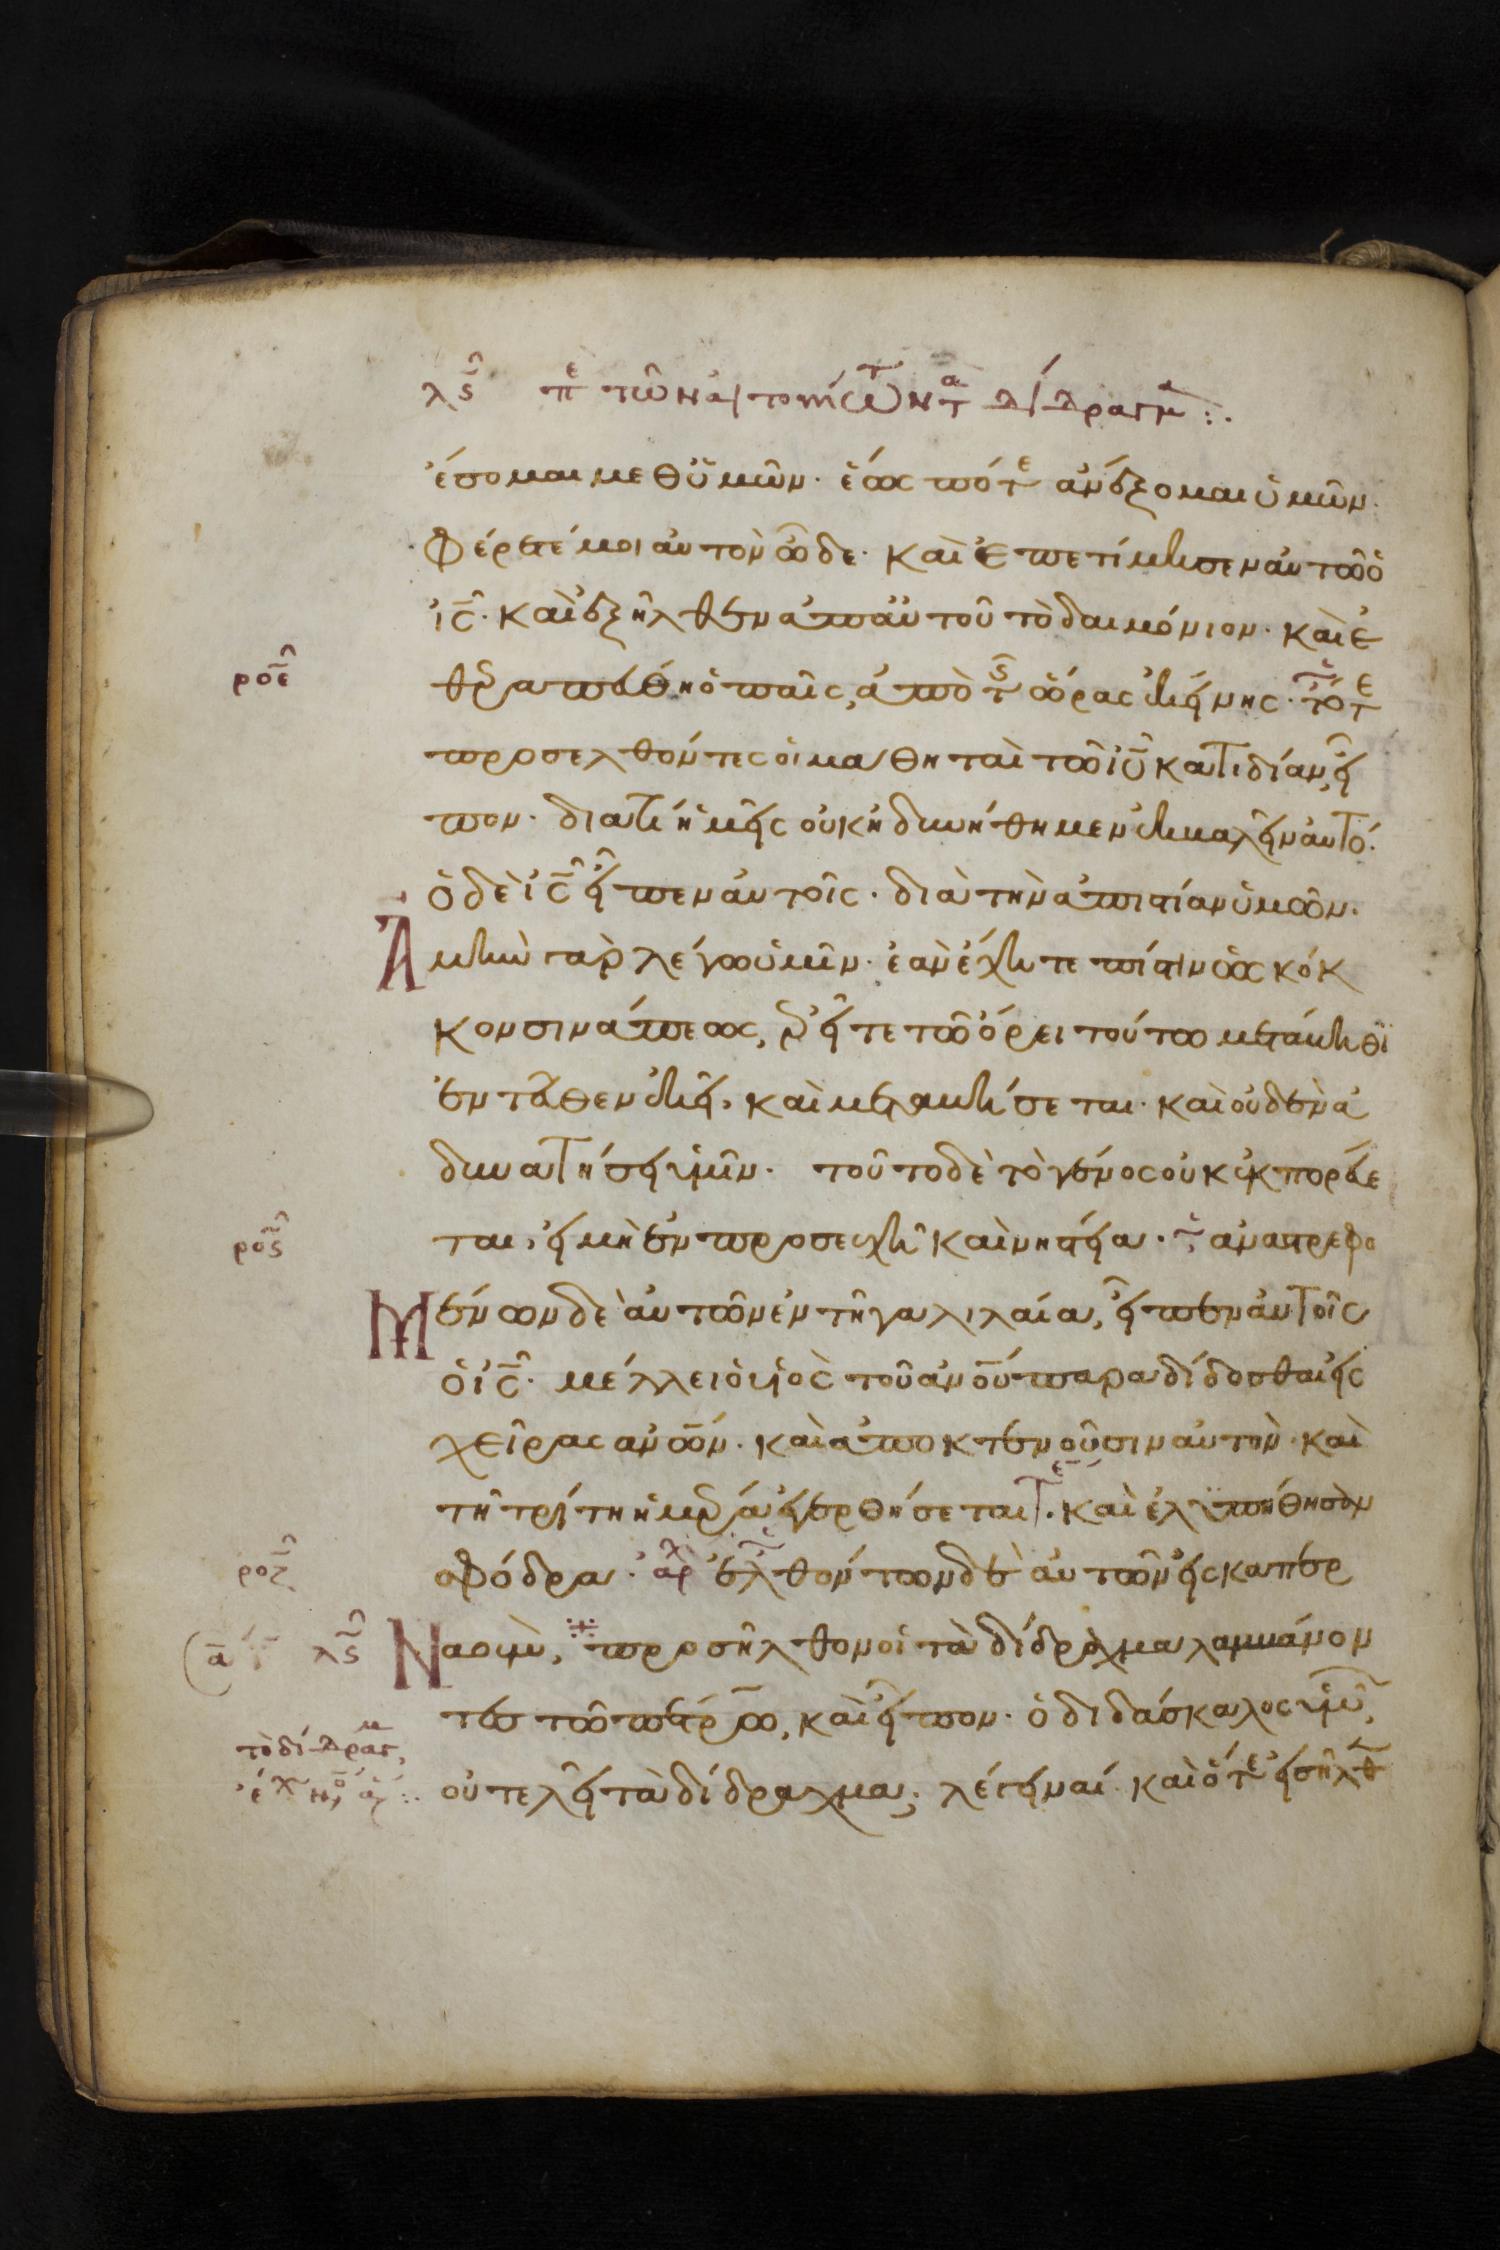 λς̄ πε τῶν αἰτούντων τα δίδραγμα :.
ἔσομαι μεθ ὑμῶν· ἕως πότε ἀνέξομαι ὑμῶν·
φέρετέ μοι αὐτὸν ὧδε· καὶ ἐπετίμησεν αὐτῶ ὁ
ις̄· καὶ ἐξῆλθεν ἀπ αὐτοῦ τὸ δαιμόνιον· καὶ ἐ
ροε̄
θεραπεύθη ὁ παῖς, ἀπὸ τῆς ὥρας ἐκείνης· τότε
προσελθόντες οἱ μαθηταὶ τῶ ιῡ κατιδίαν, εἶ
πον· διατί ἡμεῖς οὐκ ἠδυνήθημεν ἐκβαλεῖν αὐτό·
ὁ δὲ ις̄ εἶπεν αὐτοῖς· διὰ τὴν ἀπιστίαν ὑμῶν·
Ἀμὴν γὰρ λέγω ὑμῖν· ἐὰν ἔχητε πίστιν ὡς κόκ
κον σινάπεως, ἐρεῖτε τῶ ὄρει τούτω μετάβηθι
ἐντεῦθεν ἐκεῖ, καὶ μεταβήσεται· καὶ οὐδὲν ἀ
δυνατήσει ὑμῖν· τοῦτο δὲ τὸ γένος οὐκ ἐκπορεύε
ρος̄
ται, εἰ μὴ ἐν προσευχῆ καὶ νηστεία· ἀναστρεφο
Μένων δὲ αὐτῶν ἐν τῆ γαλιλαία, εἶπεν αὐτοῖς
ὁ ις̄· μέλλει ὁ υἱὸς τοῦ ανου παραδίδοσθαι εἰς
χεῖρας ανων· καὶ ἀποκτενοῦσιν αὐτὸν· καὶ
τῆ τρίτη ἡμέρα ἐγερθήσεται· καὶ ἐλυπήθησαν
ροζ̄
σφόδρα· ἀρχ ἐλθόντων δὲ αὐτῶν εἰς καπερ
ᾱ λς̄
Ναοὺμ, προσῆλθον οἱ τὰ δίδραχμα λαμβάνον
τες τῶ πέτρω, καὶ εἶπον· ὁ διδάσκαλος ὑμῶν,
τὸ δίδραγμ,
οὐ τελεῖ τὰ δίδραχμα; λέγει ναί· καὶ ὅτε εἰσῆλθ